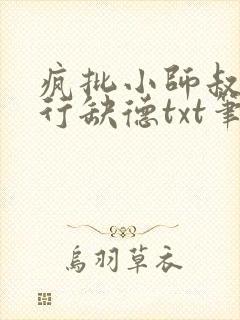 疯批小師叔
行缺德txt筆
烏羽草衣